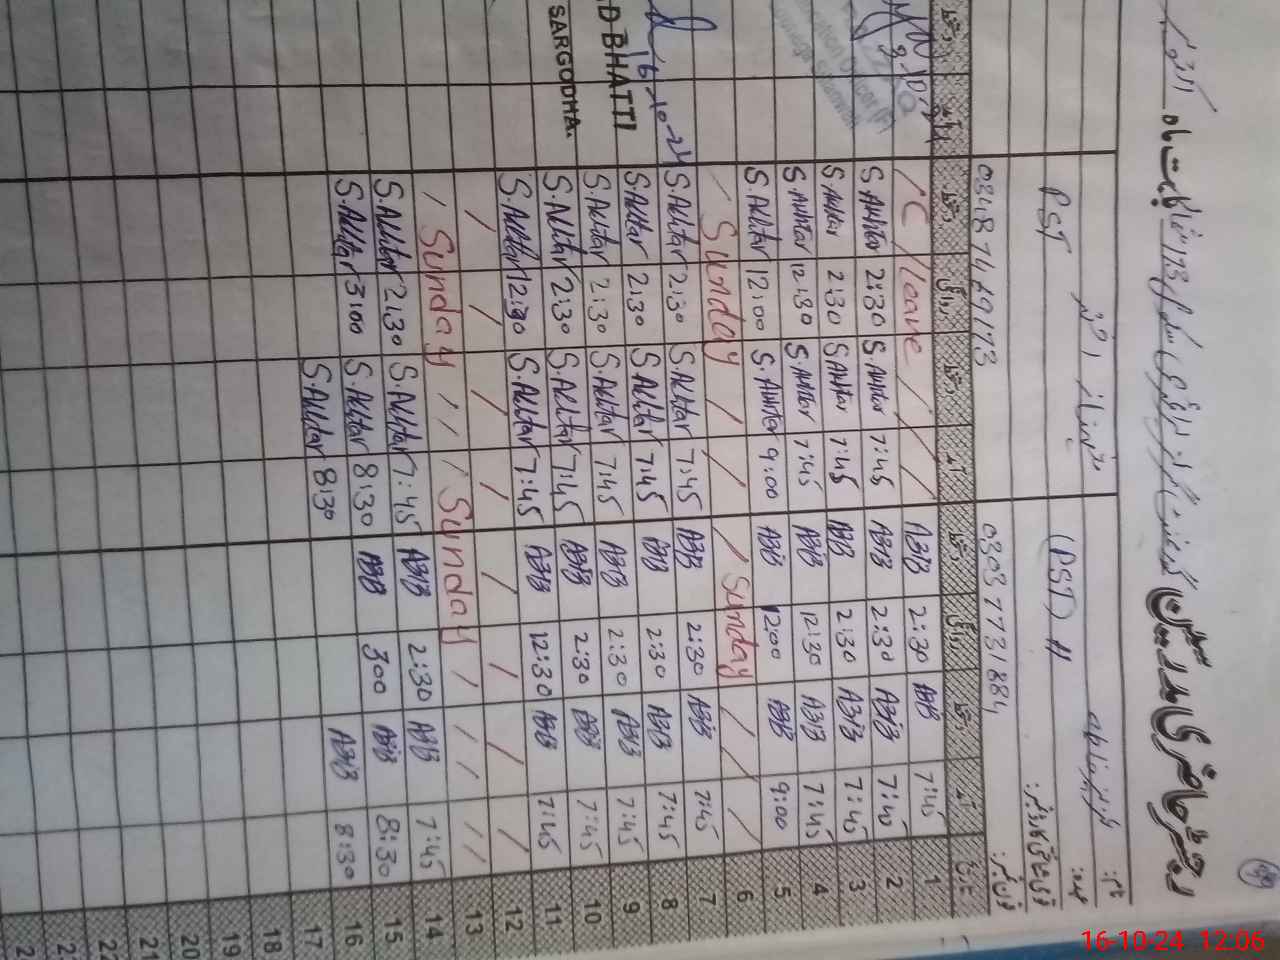 رجسٹر حاضری مدرسین گورنمنٹ
بابت ماہ اکتوبر
نام:
عہدہ: (PST)
PST
قومی شناختی کارڈ نمبر:
فون نمبر: 03037731884
03487469173
تاریخ آمد دستخط روانگی دستخط آمد دستخط روانگی دستخط
1 7:45 ABB 2:30 ABB / / C/leave /
2 7:45 ABB 2:30 ABB 7:45 S.Akhtar 2:30 S.Akhtar
3 7:45 ABB 2:30 ABB 7:45 S.Akhtar 2:30 S.Akhtar
4 7:45 ABB 12:30 ABB 7:45 S.Akhtar 12:30 S.Akhtar
5 9:00 ABB 12:00 ABB 9:00 S.Akhtar 12:00 S.Akhtar
6 / / Sunday / / / Sunday /
7 7:45 ABB 2:30 ABB 7:45 S.Akhtar 2:30 S.Akhtar
8 7:45 ABB 2:30 ABB 7:45 S.Akhtar 2:30 S.Akhtar
9 7:45 ABB 2:30 ABB 7:45 S.Akhtar 2:30 S.Akhtar
10 7:45 ABB 2:30 ABB 7:45 S.Akhtar 2:30 S.Akhtar
11 7:45 ABB 12:30 ABB 7:45 S.Akhtar 12:30 S.Akhtar
12 / / / / / / / /
13 // // / Sunday / // Sunday /
14 7:45 ABB 2:30 ABB 7:45 S.Akhtar 2:30 S.Akhtar
15 8:30 ABB 300 ABB 8:30 S.Akhtar 3:00 S.Akhtar
16 8:30 ABB 8:30 S.Akhtar
17
18
19
20
21
22
16-10-24
D BHATTI
SARGODHA.
16-10-24 12:06